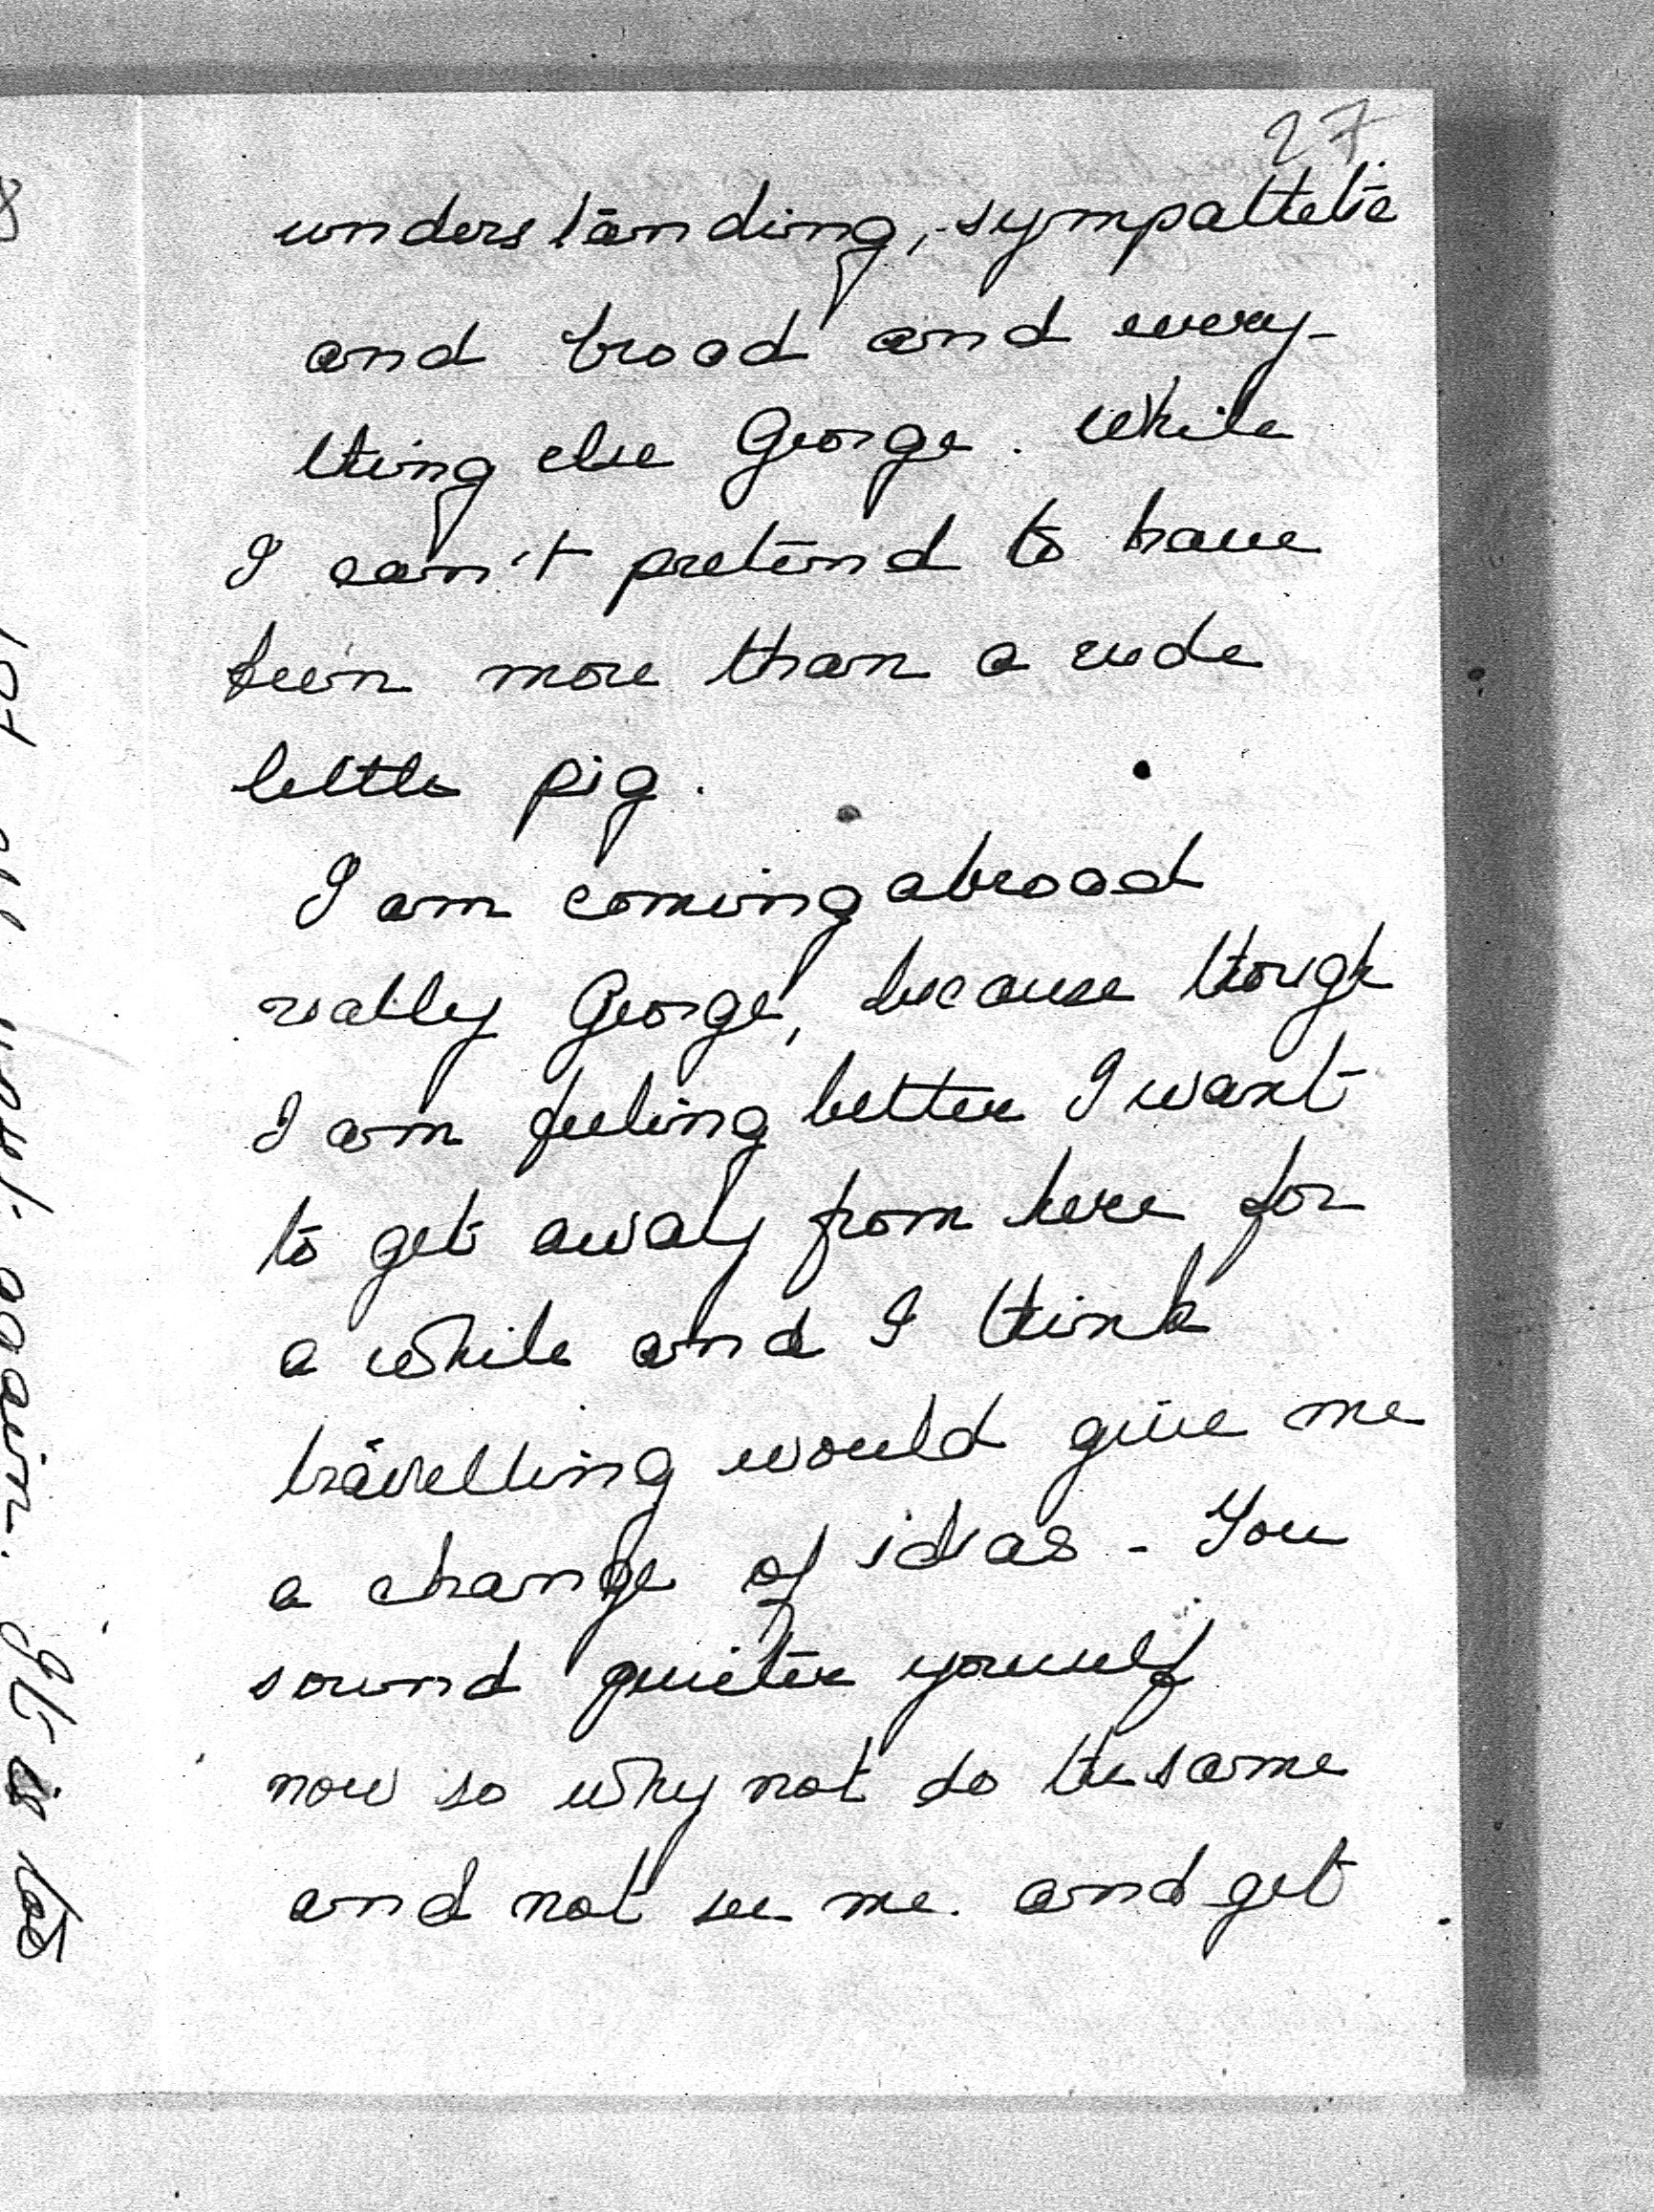 27
understanding, sympathetic
and broad and every-
thing else George. While
I can't pretend to have
been more than a rude
little pig.
I am coming abroad
really George, because though
I am feeling better I want
to get away from here for
a while and I think
travelling would give me
a change of ideas - You
sound quieter yourself
now so why not do the same
and not see me. and get